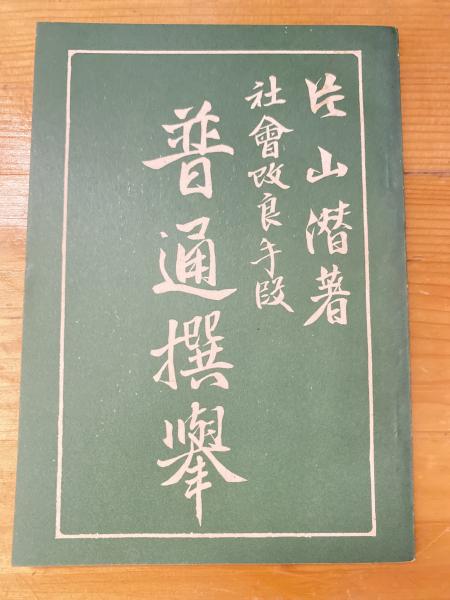 片山潜著
社會改良手段
普通撰擧